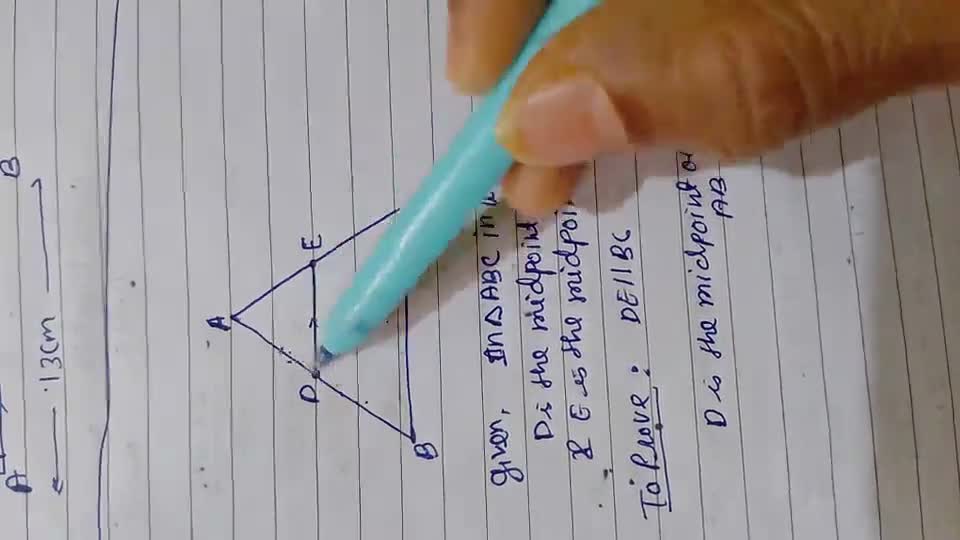 A B
13cm
A
D E
B
given, In △ABC in
D is the midpoint
& E is the midpoi
To Prove : DE||BC
D is the midpoint o
AB